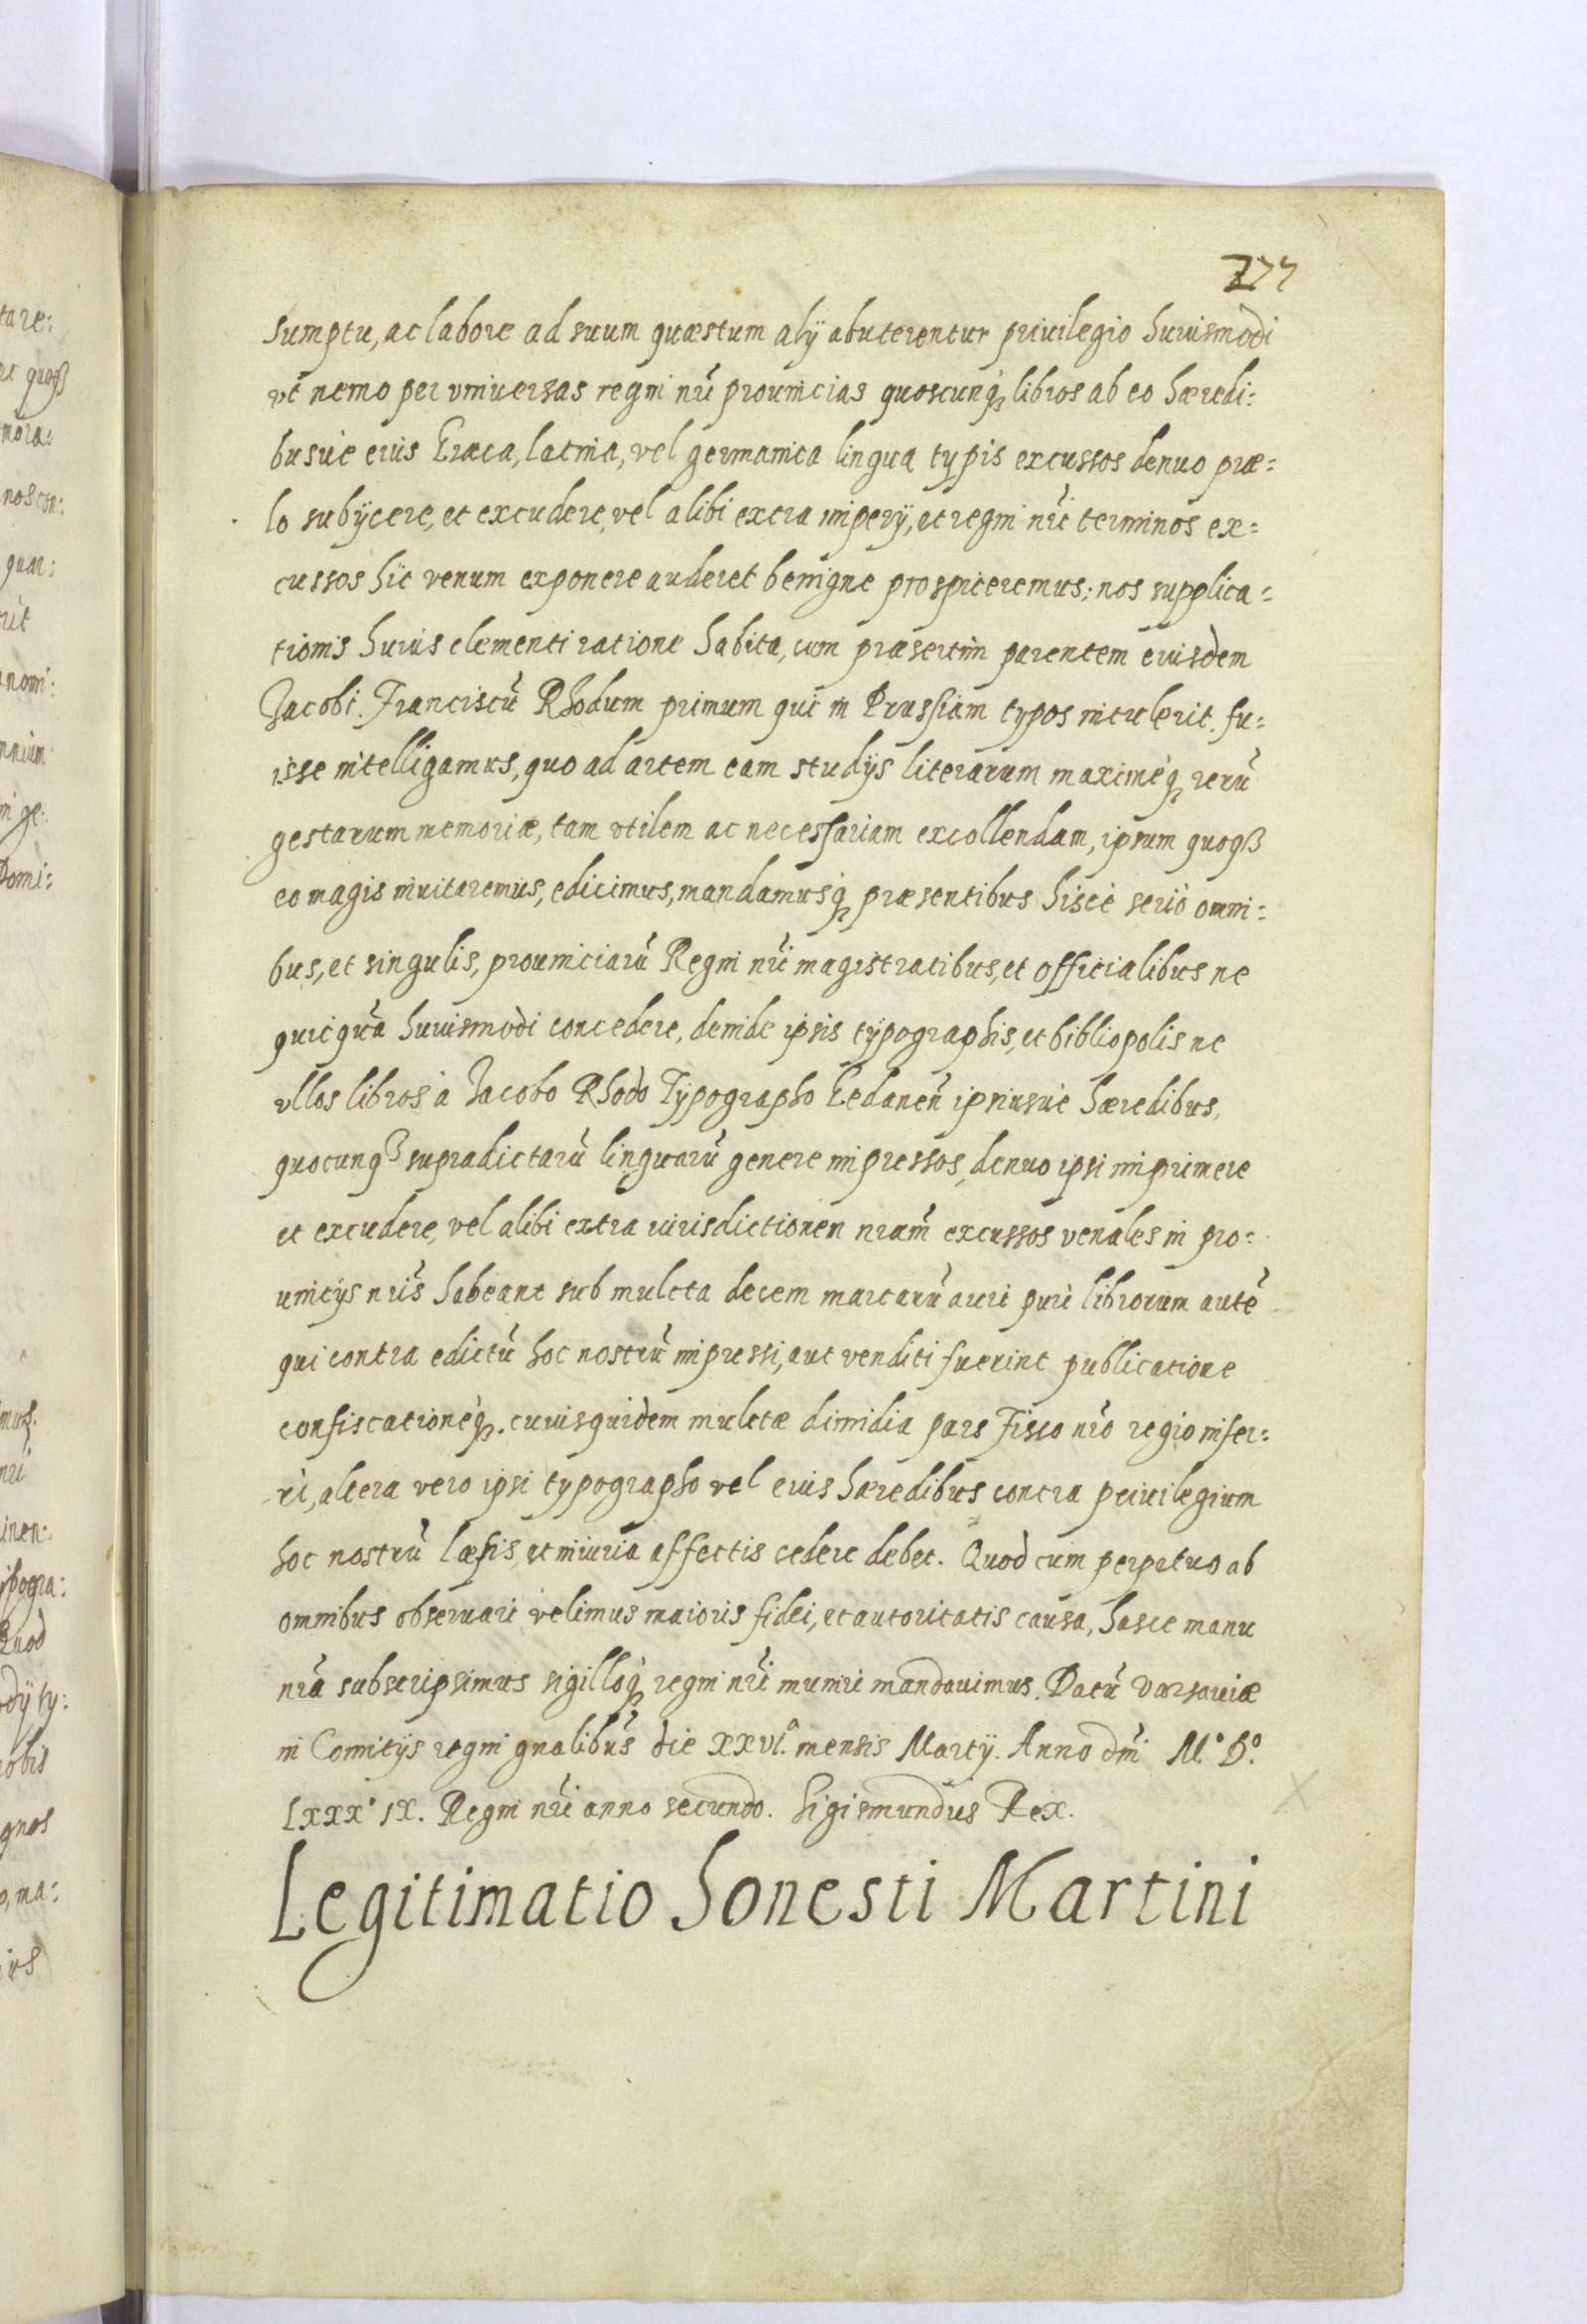 277
sumptu, ac labore ad suum quæstum alÿ abuterentur priuilegio huiusmodi
vt nemo per vniuersas regni nrĩ prouincias quoscunq́ȝ libros ab eo hæredi:
busuè eius Græca, latina, vel germanica lingua typis excussos denuo præ=
lo subÿcere, et excudere, vel alibi extra imperÿ, et regni nrĩ terminos ex=
cussos hîc venum exponere auderet benigne prospiceremus: nos supplica=
tionis huius clementi ratione habita, cum præsertim parentem eiusdem
Jacobi. Franciscũ Rhodum primum qui in Prussiam typos intulerit. fu:
isse intelligamus, quo ad artem eam studÿs literarum maximéqȝ rerũ
gestarum memoriæ, tam vtilem ac necessariam excollendam, ipsum quoqȝ
eo magis inuitaremus, edicimus, mandamusq́ȝ præsentibus hiscè seriò omni:
bus, et singulis, prouinciarũ Regni nrĩ magistratibus, et officialibus ne
quicquã huiusmodi concedere, deinde ipsis typographis, et bibliopolis ne
vllos libros à Jacobo Rhodo Typographo Gedaneñ ipsiusuè hæredibus,
quocunqȝ supradictarũ linguarũ genere impressos, denuo ipsi imprimere
et excudere, vel alibi extra iurisdictionen nram̃ excussos venales in pro=
uincÿs nrĩs habeant sub mulcta decem marcarũ auri puri librorum autẽ
qui contra edictũ hoc nostrũ impressi, aut venditi fuerint publicatione
confiscationéqȝ. cuiusquidem mulctæ dimidia pars Fisco nrõ regio infer:
ri, altera vero ipsi typographo vel eius hæredibus contra priuilegium
hoc nostrũ læsis, et iniuria affectis cedere debet. Quod cum perpetuo ab
omnibus obseruari velimus maioris fidei, et autoritatis causa, hasce manu
nrã subscripsimus sigilloq́ȝ regni nrĩ muniri mandauimus. Datũ Varsauiæ
in Comitÿs regni gnalibũs die XXVI.º mensis Martÿ. Anno dm̃ M.º D.º
LXXXº IX. Regni nrĩ anno secundo. Sigismundus Rex.
Legitimatio honesti Martini